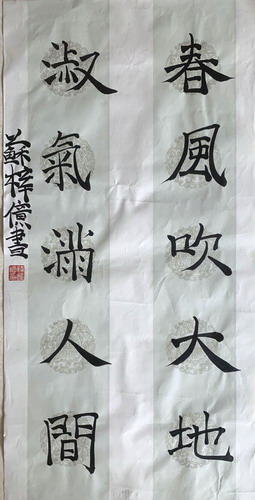 春風吹大地
淑氣滿人間
蘇梓億書